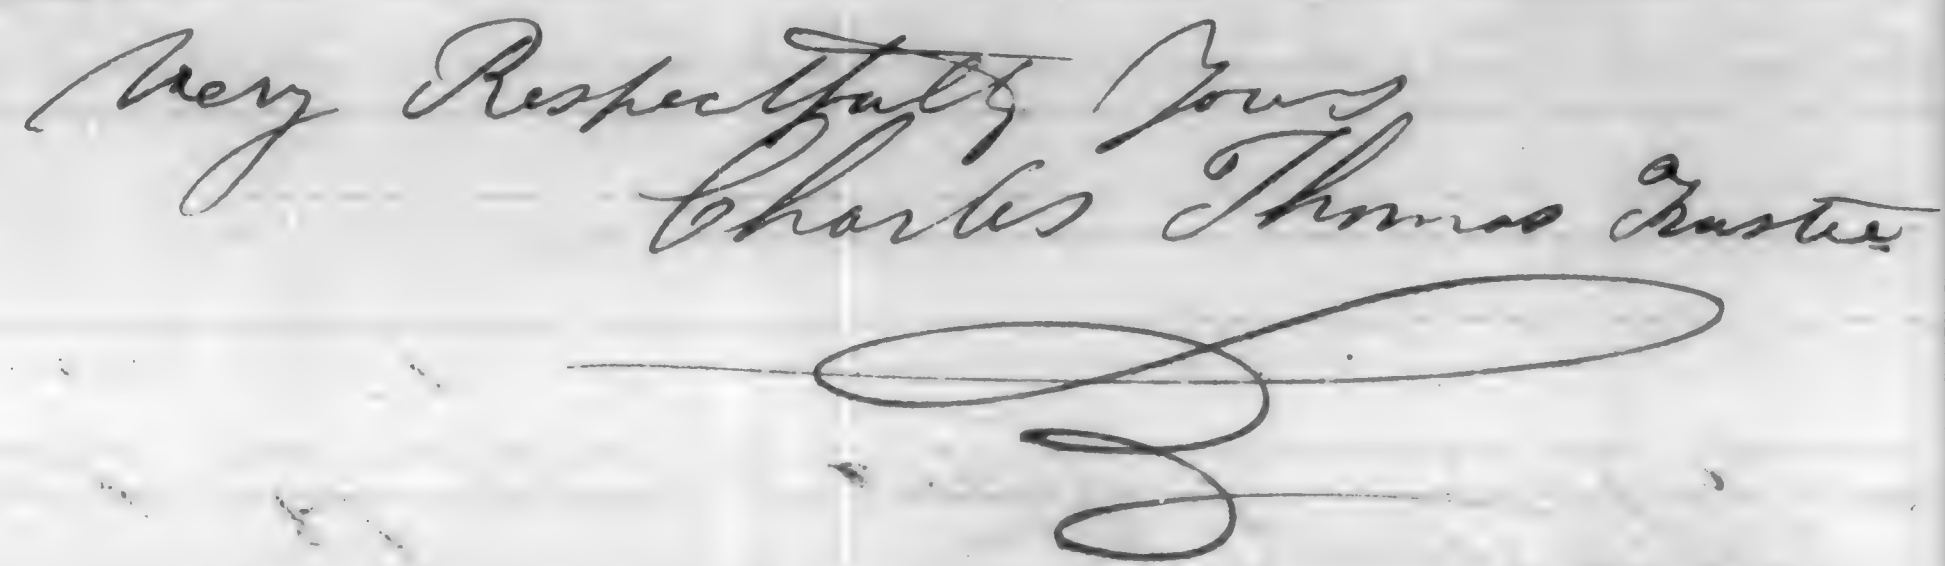 Very Respectfully Yours
Charles Thomas Trustee